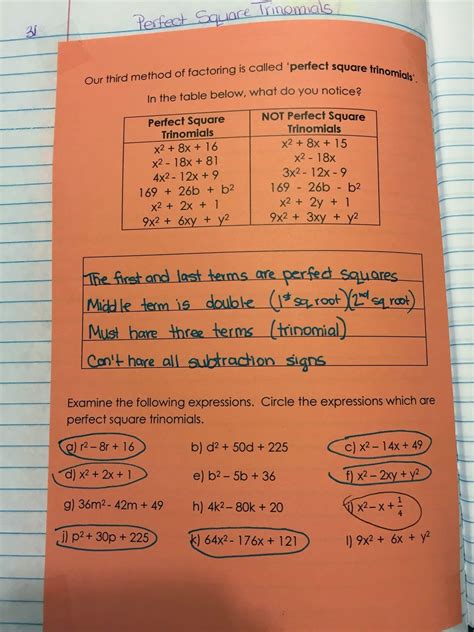 31
Perfect Square Trinomials
Our third method of factoring is called 'perfect square trinomials'.
In the table below, what do you notice?
Perfect Square Trinomials
NOT Perfect Square Trinomials
x² + 8x + 16
x² + 8x + 15
x² - 18x + 81
x² - 18x
4x² - 12x + 9
3x² - 12x - 9
169 + 26b + b²
169 - 26b - b²
x² + 2x + 1
x² + 2y + 1
9x² + 6xy + y²
9x² + 3xy + y²
The first and last terms are perfect squares
Middle term is double (1st sq root)(2nd sq root)
Must have three terms (trinomial)
Can't have all subtraction signs
Examine the following expressions. Circle the expressions which are
perfect square trinomials.
a) r² – 8r + 16 b) d² + 50d + 225 c) x² – 14x + 49
d) x² + 2x + 1 e) b² – 5b + 36 f) x² – 2xy + y²
g) 36m² - 42m + 49 h) 4k² – 80k + 20 i) x² – x + 1/4
j) p² + 30p + 225 k) 64x² - 176x + 121 l) 9x² + 6x + y²